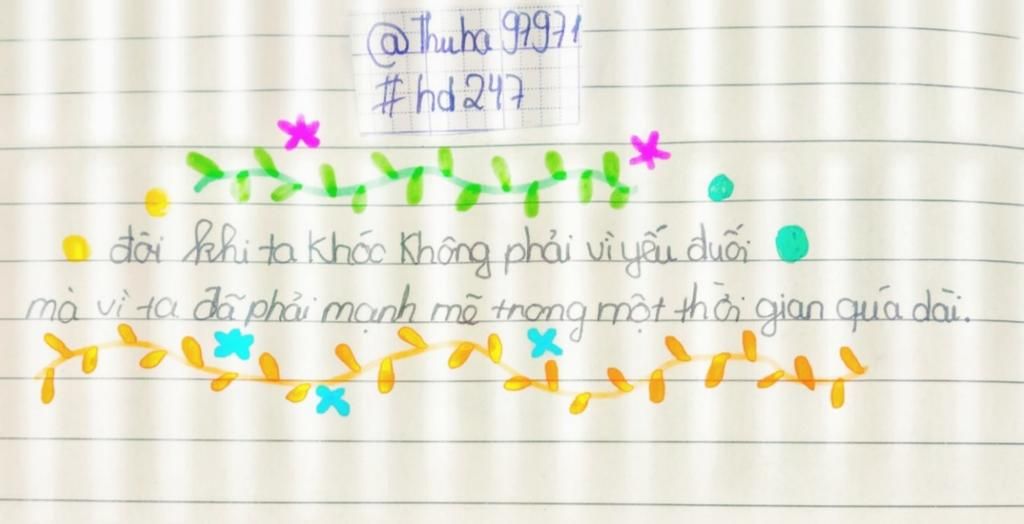 @Thuha97971
#hd247
đôi khi ta khóc không phải vì yếu đuối
mà vì ta đã phải mạnh mẽ trong một thời gian quá dài.